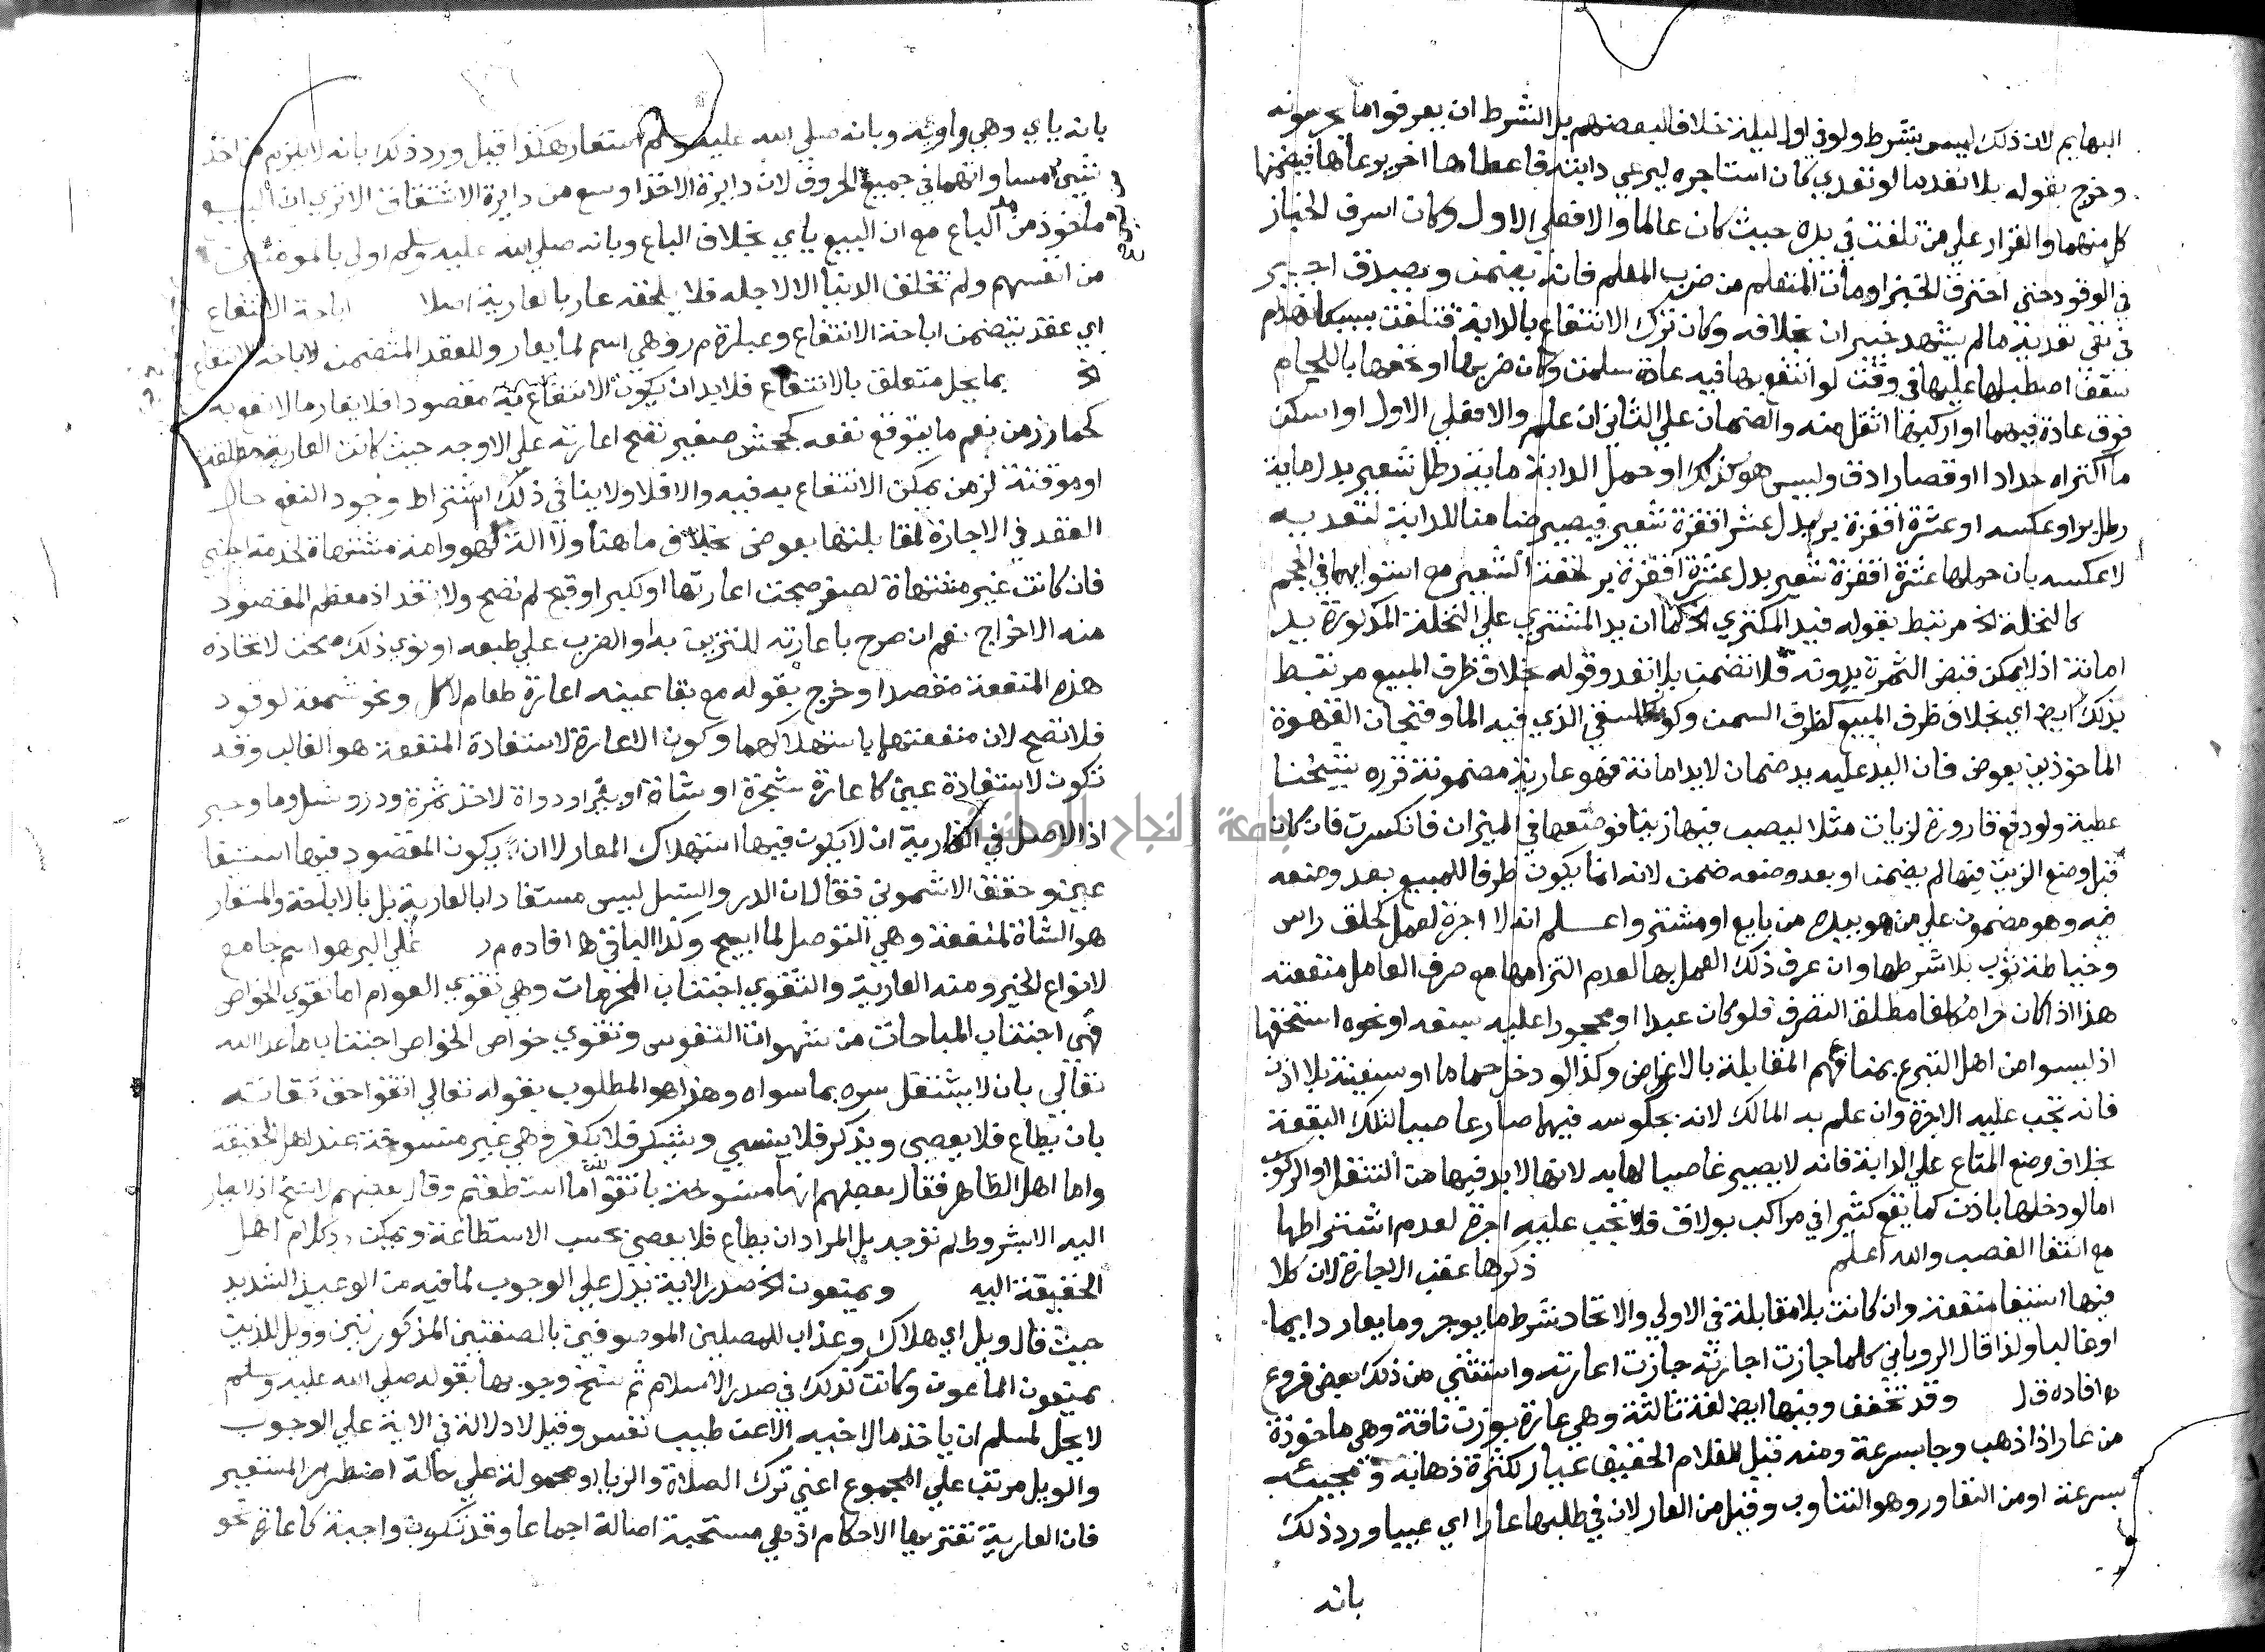 البهايم لان ذلك ليس بشرط ولو في اول ليلة خلافا لبعضهم بل الشرط ان يعرفوا ما يحرسونه
وخرج بقوله بلا تعد ما لو تعدي كان استاجره ليرعي دابته فاعطاها اخر يرعاها فيضمنها
كل منهما والقرار علي من تلفت في يده حيث كان عالما والا فعلي الاول وكان اسرف الخباز
في الوقود حتي احترق الخبز او مات المتعلم من ضرب المعلم فانه يضمن ويصدق اجير
في نفي تعديه ما لم يشهد خبيران بخلافه وكان ترك الانتفاع بالدابة فتلفت بسبب كانهدام
سقف اصطبلها عليها في وقت لو انتفع بها فيه عادة سلمت وكان ضربها او نخعها باللجام
فوق عادة فيهما او اركبها اثقل منه والضمان علي الثاني ان علم والا فعلي الاول او اسكن
ما اكتراه حدادا او قصارا دق وليس هو كذلك او حمل الدابة ماية رطل شعير بدل ماية
رطل بر او عكسه او عشرة اقفزة بر بدل عشر اقفزة شعير فيصير ضامنا للدابة لتعديه
لا عكسه بان حملها عشرة اقفزة شعير بدل عشرة اقفزة بر لخفة الشعير مع استوايهما في الحجم
كالنخلة الخ مرتبط بقوله فيد المكتري الخ كما ان يد المشتري علي النخلة المذكورة يد
امانة اذ لا يمكن قبض الثمرة بدونه فلا تضمن بلا تعد وقوله بخلاف ظرف المبيع مرتبط
بذلك ايض اي بخلاف ظرف المبيع كظرف السمن وكوز السقي الذي فيه الما وفنجان القهوة
الماخوذين بعوض فان اليد عليه يد ضمان لا يد امانة فهو عارية مضمونة قرره شيخنا
عطية ولو دفع قارورة لزيات مثلا ليصب فيها زيتا فوضعها في الميزان فانكسرت فان كان
قبل وضع الزيت فيها لم يضمن او بعد وضعه ضمن لانه انما يكون ظرفا للمبيع بعد وضعه
فيه وهو مضمون علي من هو بيده من بايع او مشتر واعلم انه لا اجرة لعمل كحلق راس
وخياطة ثوب بلا شرطها وان عرف ذلك العمل بها لعدم التزامها مع صرف العامل منفعته
هذا اذا كان حرا مكلفا مطلق التصرف فلو كان عبدا او محجورا عليه بسفه او نحوه استحقها
اذ ليسوا من اهل التبرع بمنافعهم المقابلة بالاعواض وكذا لو دخل حماما او سفينة بلا اذن
فانه تجب عليه الاجرة وان علم به المالك لانه بجلوسه فيها صار غاصبا لتلك البقعة
بخلاف وضع المتاع علي الدابة فانه لا يصير غاصبا لها به لانها لا بد فيها من التنقل او الركوب
اما لو دخلها باذن كما يقع كثيرا في مراكب بولاق فلا تجب عليه اجرة لعدم اشتراطها
مع انتفا الغصب والله اعلم ذكرها عقب الاجارة لان كلا
فيها استيفا منفعة وان كانت بلا مقابلة في الاولي والاتحاد شرط ما يوجر وما يعار دايما
او غالبا ولذا قال الروياني كلما جازت اجارته جازت اعارته واستثني من ذلك بعض فروع
افاده ق ل وقد تخفف وفيها ايض لغة ثالثة وهي عارة بوزن ناقة وهي ماخوذة
من عار اذا ذهب وجا بسرعة ومنه قيل للغلام الخفيف عيار لكثرة ذهابه ومجييه
بسرعة او من التعاور وهو التناوب وقيل من العار لان في طلبها عارا اي عيبا ورد ذلك
بانه
بانه ياي وهي واوية وبانه صلي الله عليه وسلم استعار هكذا قيل ورد ذلك بانه لا يلزم من اخذ
شيئ مساواتهما في جميع الحروف لان دايرة الاخذ اوسع من دايرة الاشتقاق الا تري ان البيع
ماخوذ من الباع مع ان البيع ياي بخلاف الباع وبانه صلي الله عليه وسلم اولي بالمومنين
من انفسهم ولم تخلق الدنيا الا لاجله فلا يلحقه عار بالعارية اصلا اباحة الانتفاع
اي عقد يتضمن اباحة الانتفاع وعبارة م ر وهي اسم لما يعار وللعقد المتضمن لاباحة الانتفاع
الخ بما يحل متعلق بالانتفاع فلا بد ان يكون الانتفاع به مقصودا فلا يعار ما لا نفع به
كحمار زمن نعم ما يتوقع نفعه كجحش صغير تصح اعارته علي الاوجه حيث كانت العارية مطلقة
او موقتة لزمن يمكن الانتفاع به فيه والا فلا ولا ينافي ذلك اشتراط وجود النفع حال
العقد في الاجارة لمقابلتها بعوض بخلاف ما هنا ولا الة لهو وامة مشتهاة لخدمة اجنبي
فان كانت غير مشتهاة لصغر صحت اعارتها او لكبر او قبح لم تصح ولا نقد اذ معظم المقصود
منه الاخراج نعم ان صرح باعارته للتزين به او الضرب علي طبعه او نوي ذلك صحت لاتخاذه
هذه المنفعة مقصدا وخرج بقوله مع بقا عينه اعارة طعام لاكل ونحو شمعة لوقود
فلا تصح لان منفعتهما باستهلاكهما وكون الاعارة لاستفادة المنفعة هو الغالب وقد
تكون لاستفادة عين كاعارة شجرة او شاة او بير او دواة لاخذ ثمرة ودر ونسل وما وحبر
اذ الاصل في العارية ان لا يكون فيها استهلاك المعار لا ان لا يكون المقصود فيها استيفا
عين وحقق الاشموني فقال ان الدر والنسل ليس مستفادا بالعارية بل بالاباحة والمعار
هو الشاة لمنفعة وهي التوصل لما ابيح وكذا الباقي افاده م ر علي البر هو اسم جامع
لانواع الخير ومنه العارية والتقوي اجتناب المحرمات وهي تقوي العوام اما تقوي الخواص
فهي اجتناب المباحات من شهوات النفوس وتقوي خواص الخواص اجتناب ما عدا الله
تعالي بان لا يشتغل سره بما سواه وهذا هو المطلوب بقوله تعالي اتقوا حق تقاته
بان يطاع فلا يعصي ويذكر فلا ينسي ويشكر فلا يكفر وهي غير منسوخة عند اهل الحقيقة
واما اهل الظاهر فقال بعضهم انها منسوخة باتقوا الله ما استطعتم وقال بعضهم لا نسخ اذ لا يصار
اليه الا بشروط لم توجد بل المراد ان يطاع فلا يعصي بحسب الاستطاعة ويمكن رد كلام اهل
الحقيقة اليه ويمنعون الخ صدر الاية يدل علي الوجوب لما فيه من الوعيد الشديد
حيث قال ويل اي هلاك وعذاب للمصلين الموصوفين بالصفتين المذكورتين وويل للذين
يمنعون الماعون وكانت كذلك في صدر الاسلام ثم نسخ وجوبها بقوله صلي الله عليه وسلم
لا يحل لمسلم ان ياخذ مال اخيه الا عن طيب نفس وقيل لا دلالة في الاية علي الوجوب
والويل مرتب علي المجموع اعني ترك الصلاة والريا او محمولة علي حالة اضطرار المستعير
فان العارية تعتريها الاحكام اذ هي مستحبة اصالة اجماعا وقد تكون واجبة كاعارة نحو
جامعة النجاح الوطنية